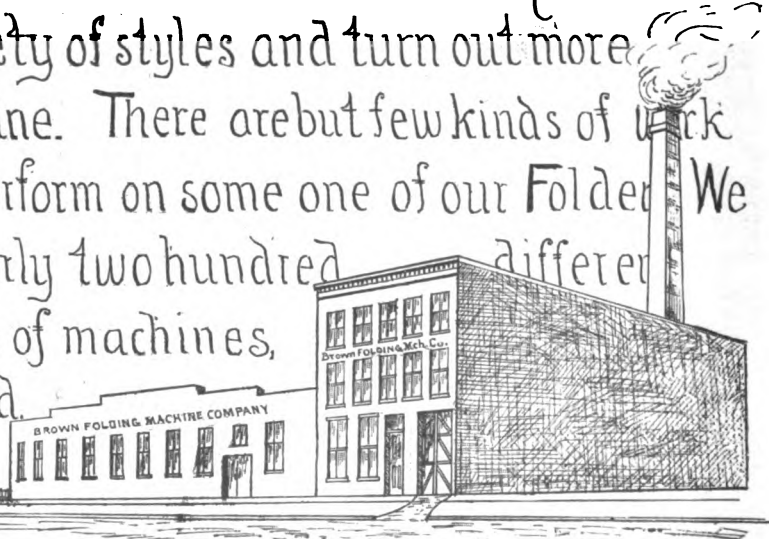 ety of styles and turn out more
ine. There are but few kinds of w rk
rform on some one of our Folder We
rly two hundred differen
of machines,
d.
BROWN FOLDING Mch. Co.
BROWN FOLDING MACHINE COMPANY